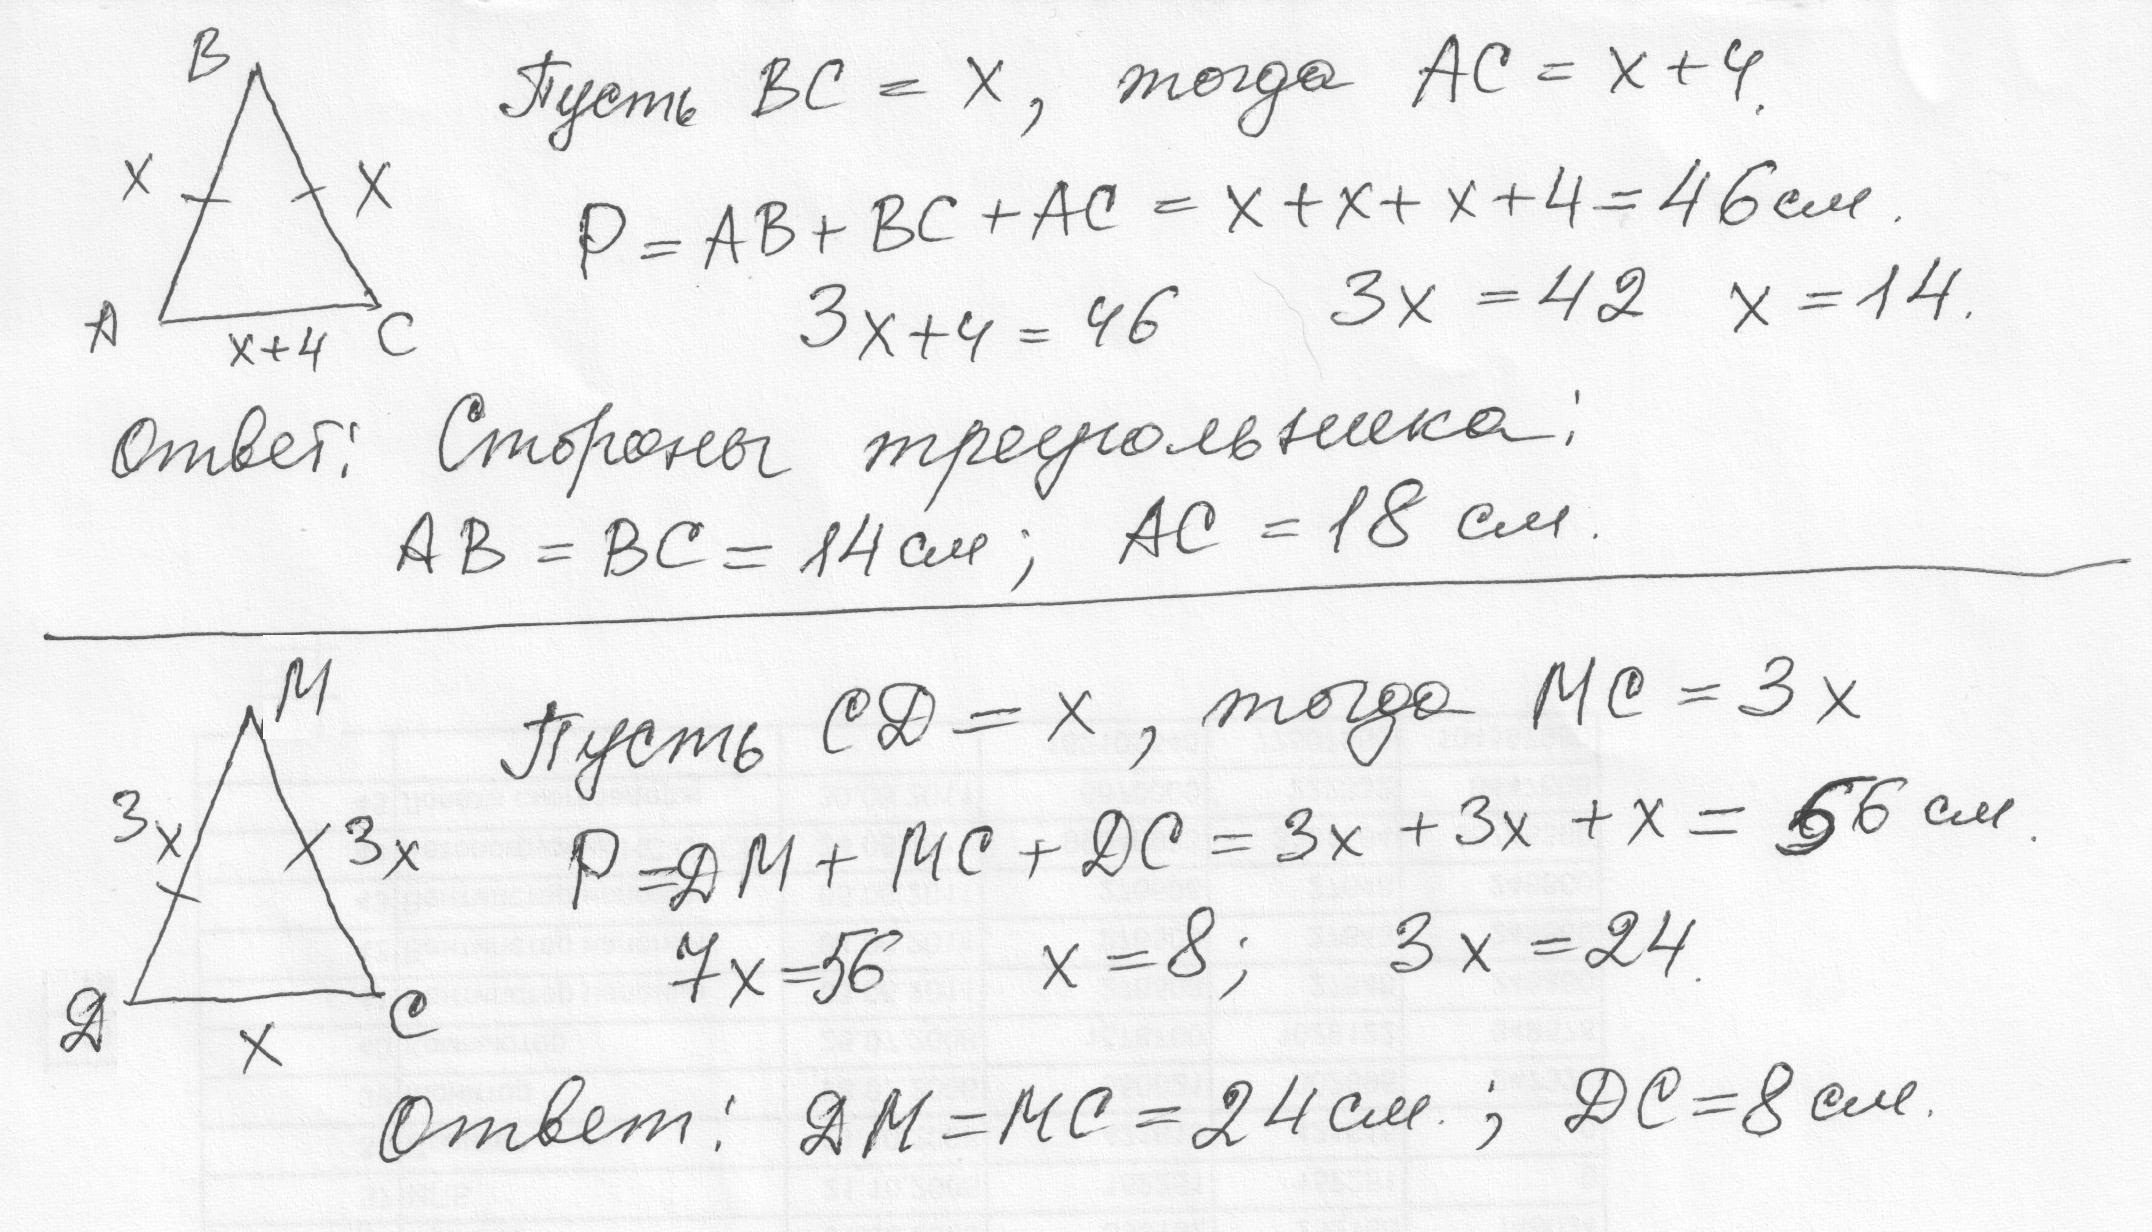 B
Пусть BC = x, тогда AC = x+4.
x x
P = AB + BC + AC = x + x + x + 4 = 46 см.
3x+4 = 46 3x = 42 x = 14.
A x+4 C
Ответ: Стороны треугольника:
AB = BC = 14 см; AC = 18 см.
M
Пусть CD = x, тогда MC = 3x
3x 3x
P = ДM + MC + DC = 3x + 3x + x = 56 см.
7x = 56 x = 8; 3x = 24.
Д x C
Ответ: ДM = MC = 24 см.; DC = 8 см.